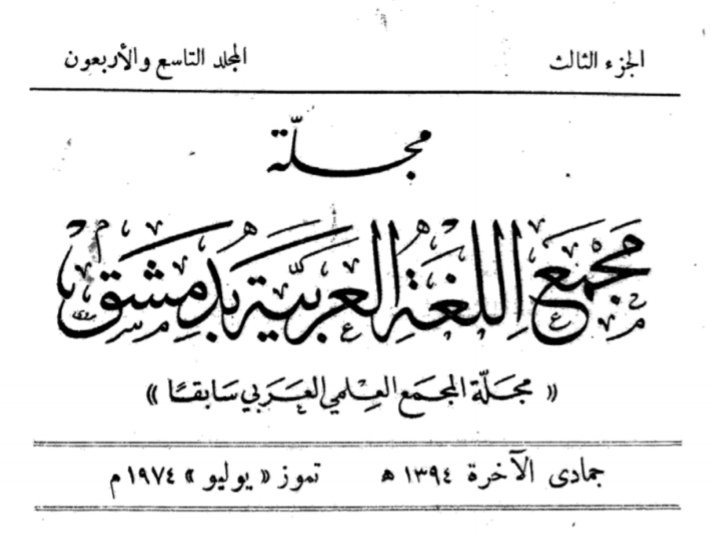 الجزء الثالث المجلد التاسع والأربعون
مجلّة
مَجْمَع اللغَةِ العَرَبيَّة بدِمَشق
« مجَلّة المجمَع العِلمي العَرَبي سَابقًا »
جمادى الآخرة ١٣٩٤ هـ تموز « يوليو » ١٩٧٤ م